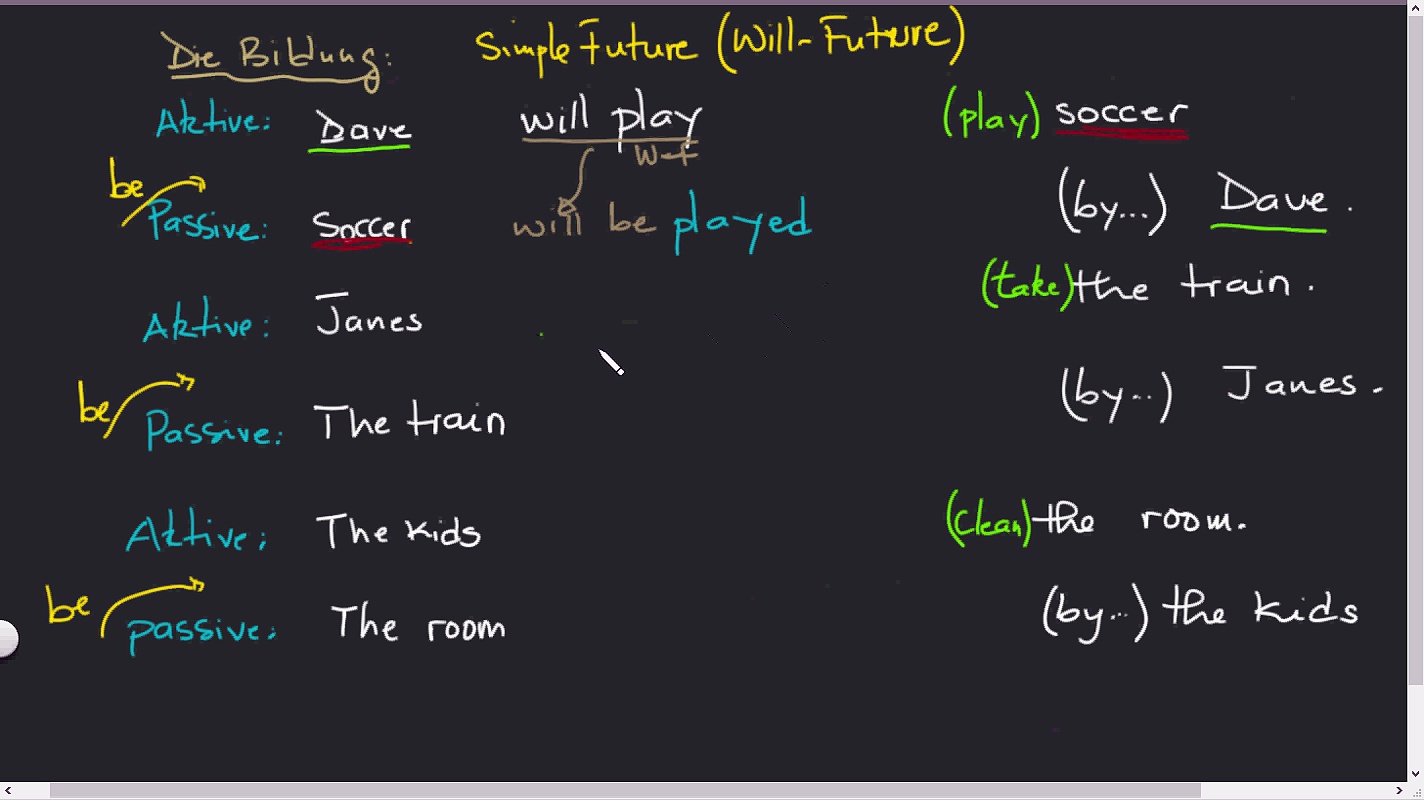 Die Bildung: Simple Future (Will-Future)
Aktive: Dave will play (play) soccer
W-f
be Passive: Soccer will be played (by...) Dave.
Aktive: Janes (take) the train.
be Passive: The train (by..) Janes.
Aktive: The kids (clean) the room.
be passive: The room (by..) the kids